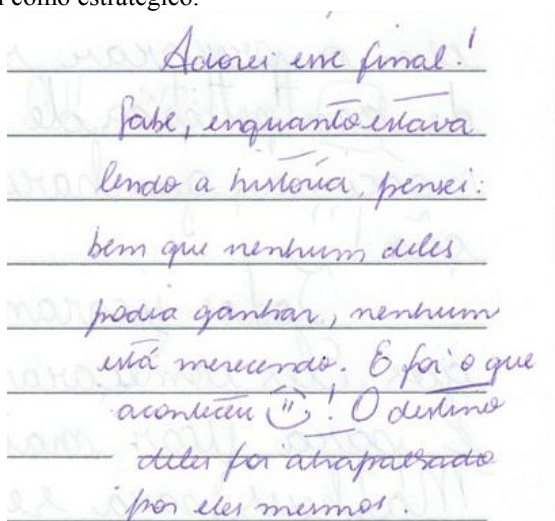 l como estratégico.
Adorei esse final!
Sabe, enquanto estava
lendo a história, pensei:
bem que nenhum deles
podia ganhar, nenhum
está merecendo. E foi o que
aconteceu ! O destino
deles foi atrapalhado
por eles mesmos.